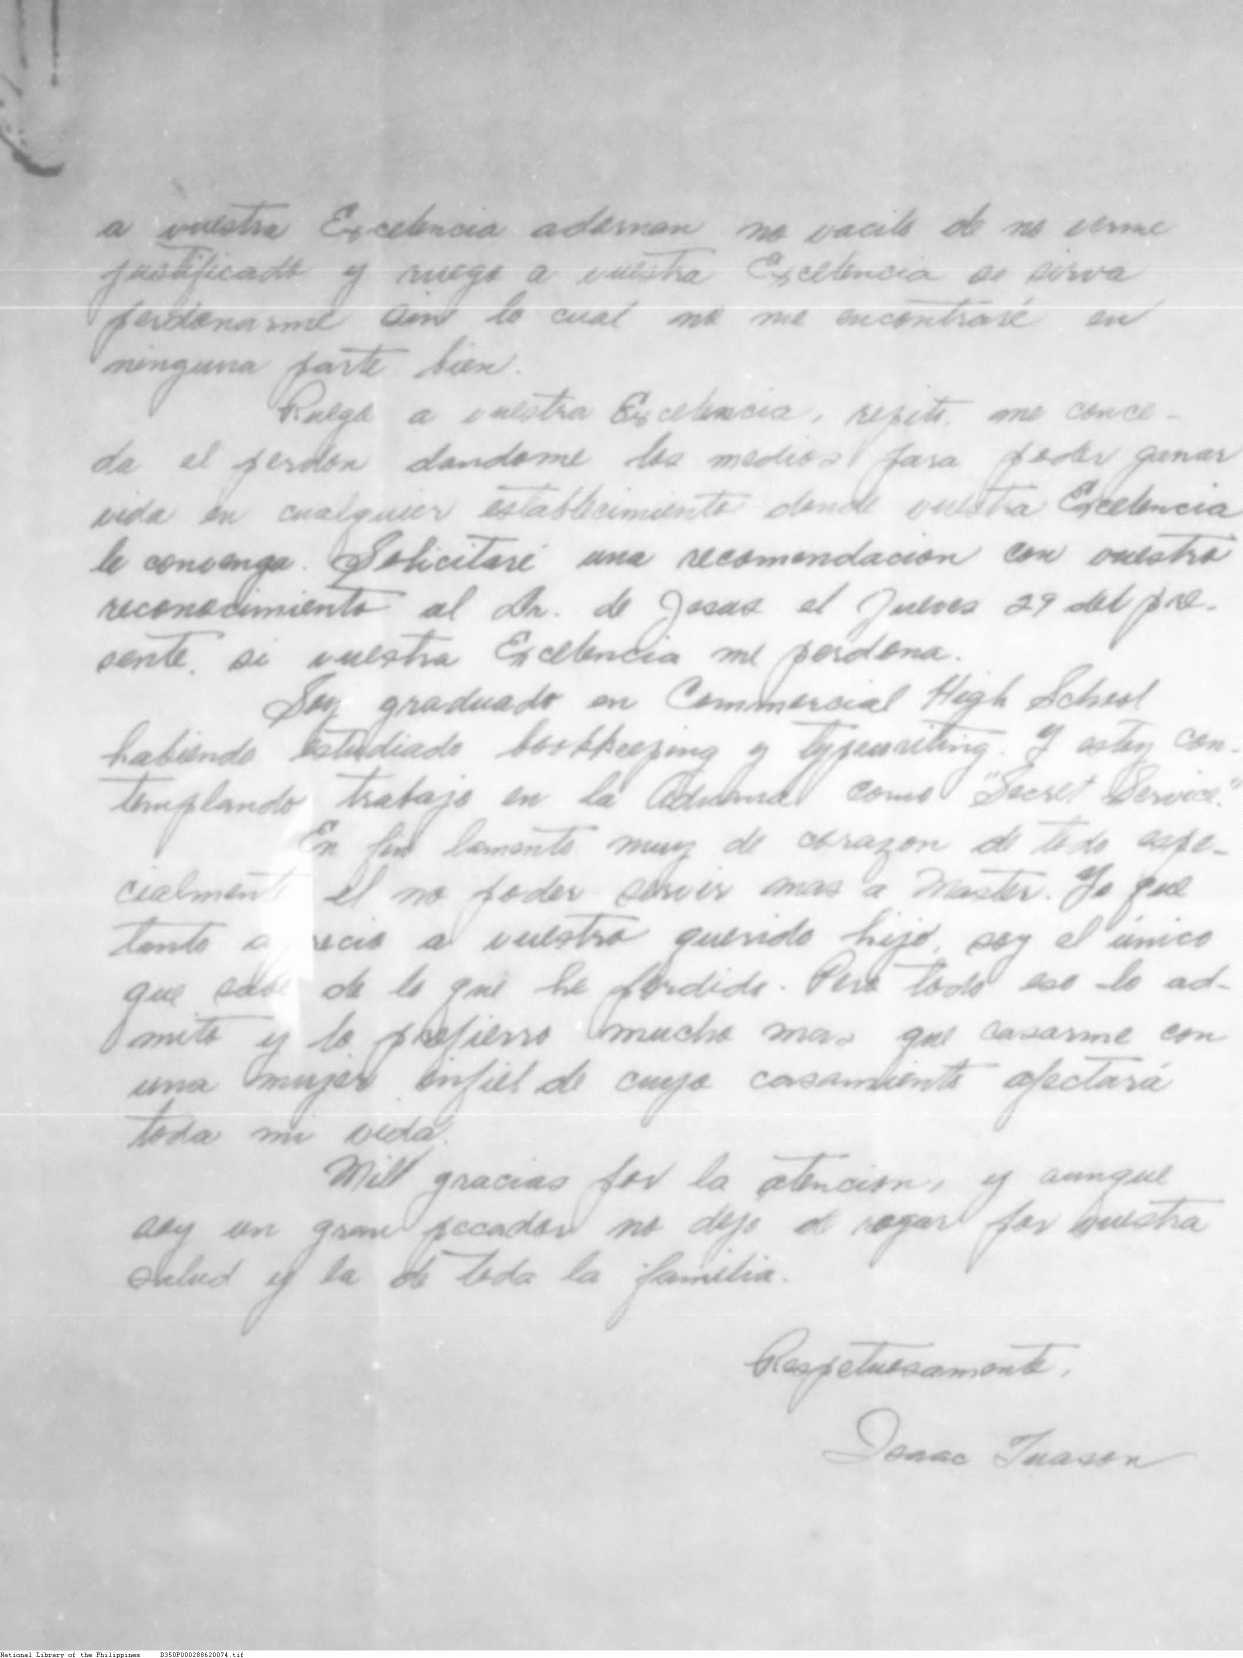 a vuestra Excelencia adornan no vacilo de no verme
justificado y ruego a vuestra Excelencia se sirva
perdonarme sin lo cual no me encontraré en
ninguna parte bien.
Ruego a vuestra Excelencia, repito, me conce-
da el perdon dandome los medios para poder ganar
vida en cualquier establecimiento donde vuestra Excelencia
le convenga. Solicitaré una recomendacion con vuestro
reconocimiento al Dr. de Jesus el Jueves 29 del pre-
sente, si vuestra Excelencia me perdona.
Soy graduado en Commercial High School
habiendo estudiado bookkeeping y typewriting. Y estoy con-
templando trabajo en la Aduana como "Secret Service."
En fin lamento muy de corazon de todo espe-
cialmente el no poder servir mas a Master. Yo que
tanto aprecio a vuestro querido hijo, soy el único
que sabe de lo que he perdido. Pero todo eso lo ad-
mito y lo prefierro mucho mas que casarme con
una mujer infiel de cuyo casamiento afectará
toda mi vida.
Mill gracias por la atencion, y aunque
soy un gran pecador no dejo de rogar por vuestra
salud y la de toda la familia.
Respetuosamente,
Isaac Tuason
National Library of the Philippines D350P000288620074.tif